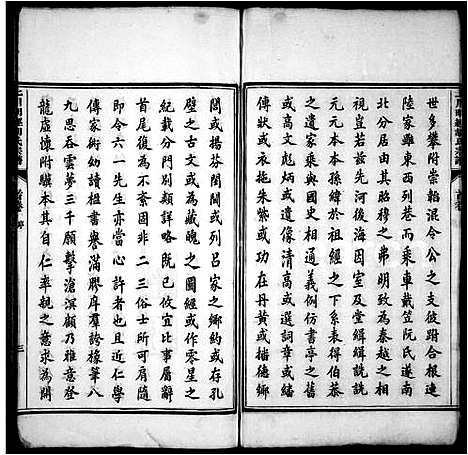 世多攀附崇韜混令公之支彼跗合
陸家雖東西列巷而乘車戴笠阮氏遂南
北分居因其昭穆之弗明致為秦越之相
視豈若先河後海因室及堂緝緝詵詵
元元本本係孫於祖經之下承表得伯恭
之遺家乘與國史相通義例仿書亭之舊
文或彪炳丹青或遺像清高或選詞章或繕
傳狀或衣拖朱紫或迹在丹黃或搢德鄉
閭或揚芬閨列呂家之鄉約或存孔
壁之古文或為藏魄之圖經或作零星之
紀載分門別類詳略既已攸宜比事屬辭
首尾復為不紊固非二三俗士所可肩隨
即令六一先生亦當心許者也且近仁學
傳家術幼耽楮墨譽滿膠庠羣誇椽筆八
九思吞雲夢三千願擊滄溟顧乃雅意登
龍虛懷附驥本其自仁率親之意求為開
三